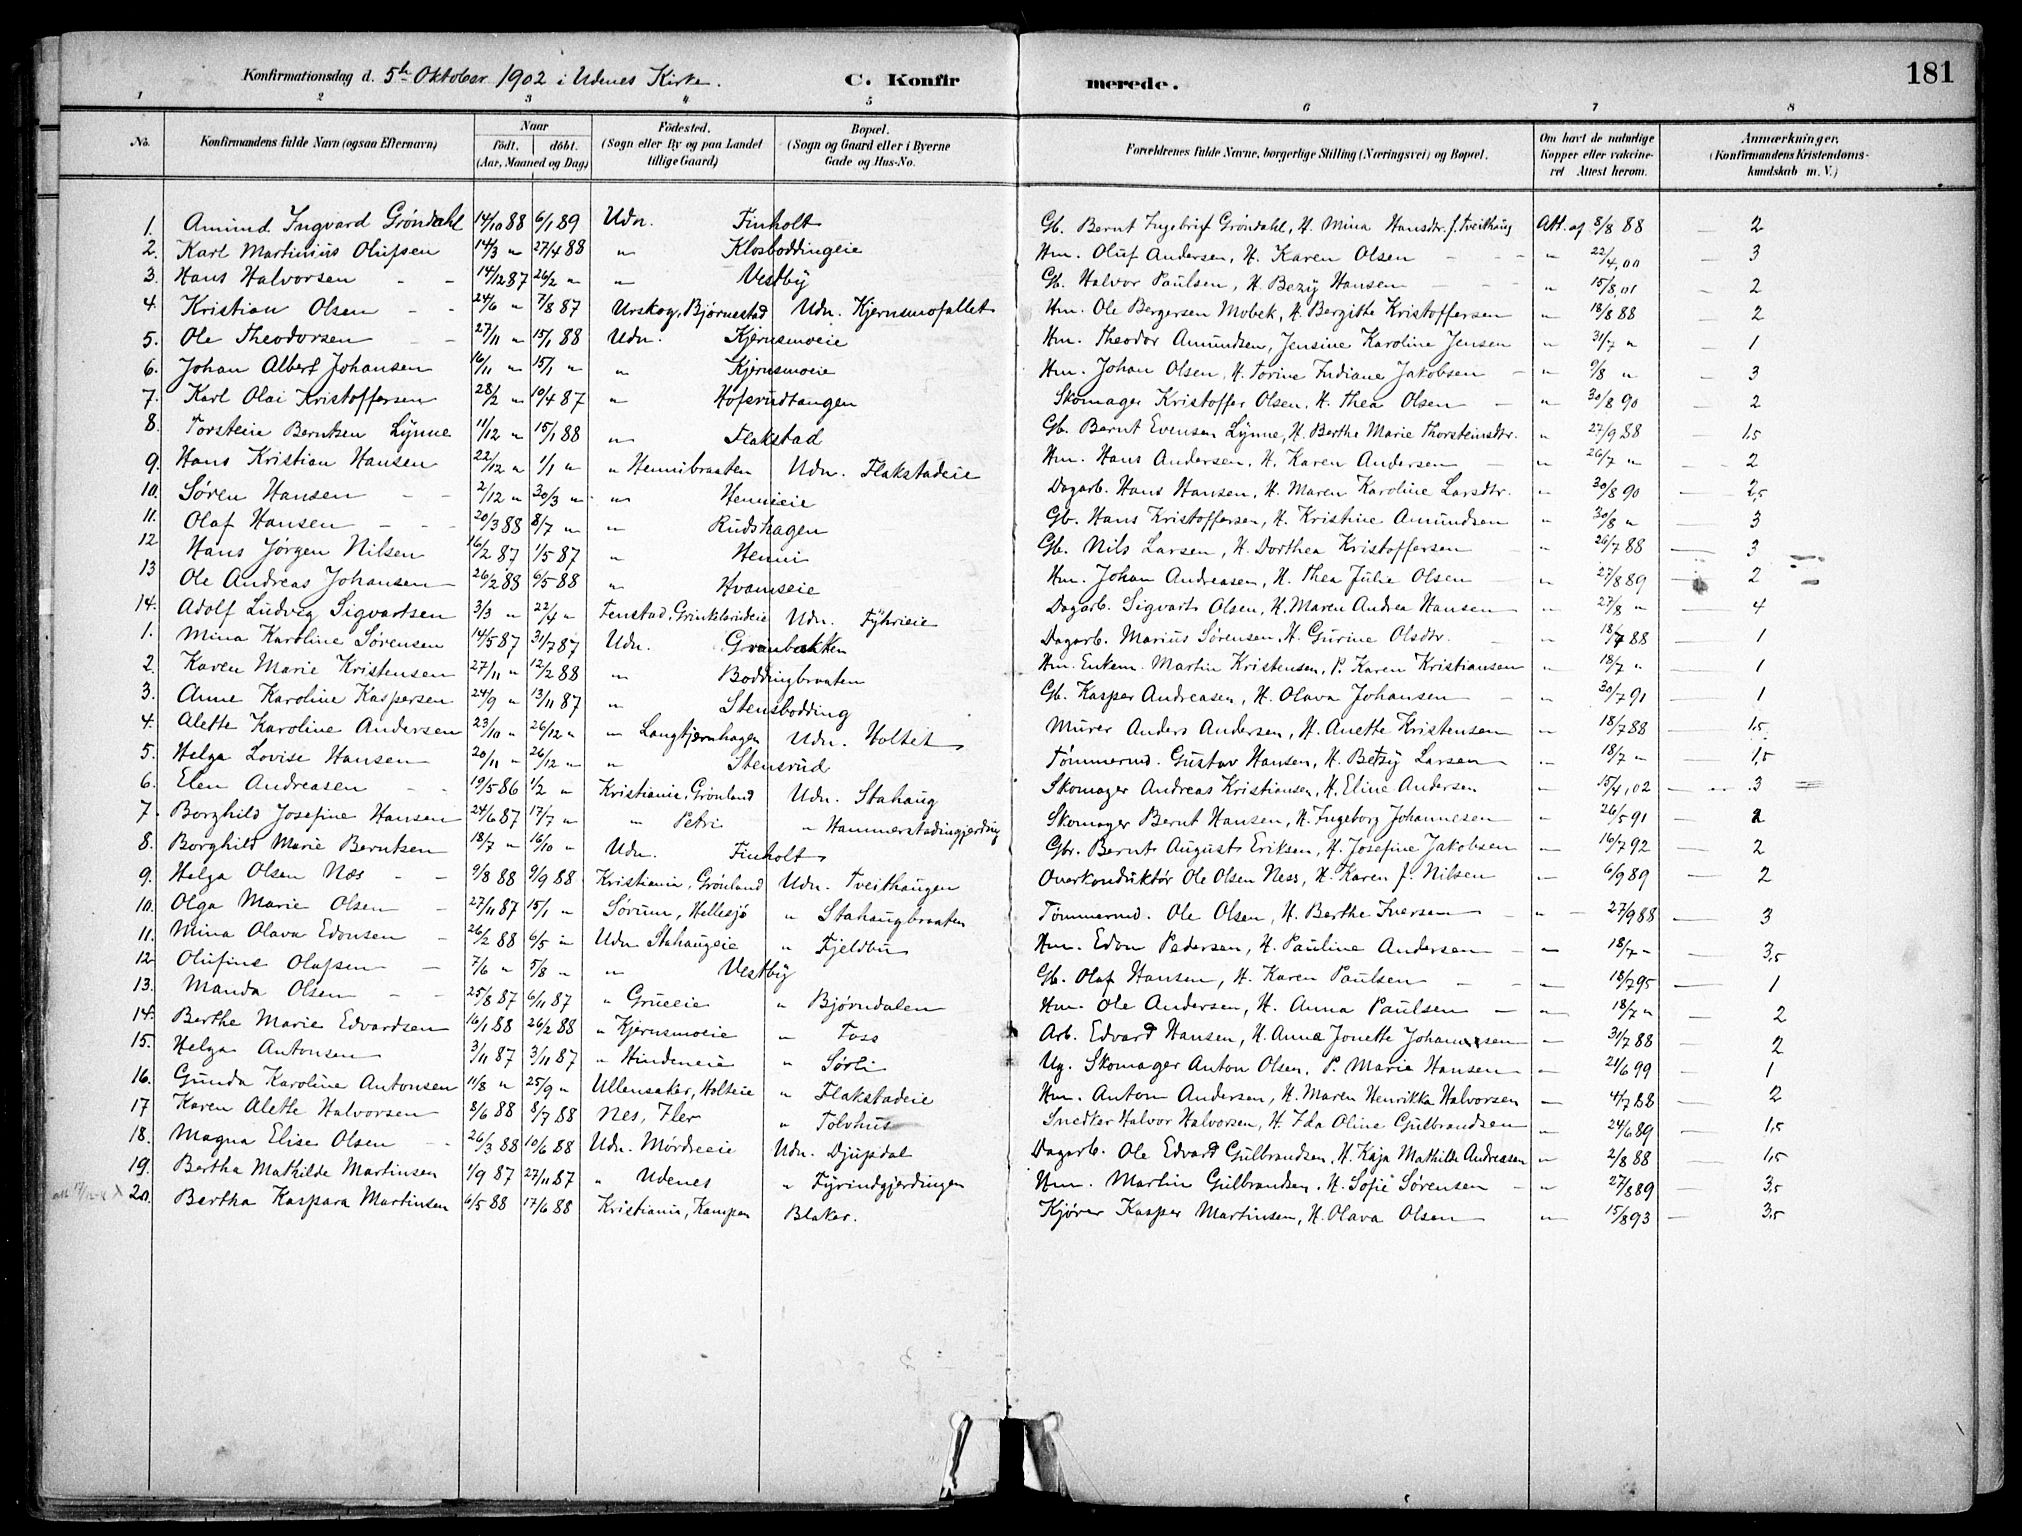 Konfirmationsdag d. 5te Oktober 1902 i Udenes Kirke. C. Konfirmerede. 181
1 2 3 4 5 6 7 8
No. Konfirmandens fulde Navn (ogsaa Efternavn) Naar födt. döbt. (Aar, Maaned og Dag) Födested. (Sogn eller By og paa Landet tillige Gaard) Bopæl. (Sogn og Gaard eller i Byerne Gade og Hus-No. Forældrenes fulde Navne, borgerlige Stilling (Næringsvei) og Bopæl. Om havt de naturlige Kopper eller vakcineret Attest herom. Anmærkninger, (Konfirmandens Kristendomskundskab m. V.)
1. Amund Ingvard Gröndahl 14/10 88 6/1 89 Udn. Finholt Gb. Bernt Ingebrigt Gröndahl, H. Mina Hansdtr. f. Tveithaug Att. af 8/8 88 — 2
2. Karl Martinius Olufsen 14/3 " 27/4 88 " Klosboddingeie Hm. Oluf Andersen, H. Karen Olsen " 22/4,00 — 3
3. Hans Halvorsen 14/12 87 26/2 " " Vestby Gb. Halvor Paulsen, H. Bezy Hansen " 15/8,01 — 2
4. Kristian Olsen 24/6 " 7/8 87 Urskog, Bjørnestad Udn. Kjernsmofallet Hm. Ole Bergersen Mobek, H. Bergithe Kristoffersen " 18/8 88 — 2
5. Ole Theodorsen 27/11 " 15/1 88 Udn. Kjernsmoeie Hm. Theodor Amundsen, Jensine Karoline Jensen " 31/7 " — 1
6. Johan Albert Johansen 16/11 " 15/1 " " Kjernsmoeie Hm. Johan Olsen, H. Torine Indiane Jakobsen " 9/8 " — 3
7. Karl Olai Kristoffersen 28/2 " 10/4 87 " Hofsrudtangen Skomager Kristoffer Olsen, H. Thea Olsen " 30/8 90 — 2
8. Torstein Berntsen Lynne 11/12 " 15/1 88 " Flakstad Gb. Bernt Evensen Lynne, H. Berthe Marie Thorsteinsdtr. " 27/9 88 — 1,5
9. Hans Kristian Hansen 22/12 " 1/1 " " Hennibraaten Udn. Flakstadeie Hm. Hans Andersen, H. Karen Andersen " 26/7 " — 2
10. Sören Hansen 2/12 " 30/3 " " Hennieie Dagarb. Hans Hansen, H. Maren Karoline Larsdtr. " 30/8 90 — 2,5
11. Olaf Hansen 20/3 88 8/7 " " Rudshagen Gb. Hans Kristoffersen, H. Kristine Amundsen " 30/8 " — 3
12 Hans Jørgen Nilsen 16/2 87 1/5 87 " Henni Gb. Nils Larsen, H. Dorthea Kristoffersen " 26/7 88 — 3
13 Ole Andreas Johansen 26/2 88 6/5 88 " Hvamseie Hm. Johan Andreasen, H. Thea Julie Olsen " 27/8 89 — 2
14. Adolf Ludvig Sigvartsen 3/3 " 22/4 " Fenstad, Grinkelsrudeie Udn. Fyhrieie Dagarb. Sigvart Olsen, H. Maren Andrea Hansen " 27/8 " — 4
1. Mina Karoline Sørensen 14/5 87 31/7 87 Udn. Granbakken Dagarb. Marius Sørensen, H. Gurine Olsdtr. " 18/7 88 — 1
2. Karen Marie Kristensen 27/11 " 12/2 88 " Boddingbraaten Hm. Enkem. Martin Kristensen, P. Karen Kristiansen " 18/7 " — 1
3. Anne Karoline Kaspersen 24/9 " 13/11 87 " Stensbodding Gb. Kasper Andreasen, H. Olava Johansen " 30/7 91 — 1
4. Alette Karoline Andersen 23/10 " 26/12 " " Langtjernhagen Udn. Holtet Murer Anders Andersen, H. Anette Kristensen " 18/7 88 — 1,5
5. Helga Lovise Hansen 20/11 " 26/12 " " Stensrud Tömmermd. Gustav Hansen, H. Betzy Larsen " 18/7 " — 1,5
6. Elen Andreasen 19/5 86 1/2 " Kristiania, Grönland Udn. Stahaug Skomager Andreas Kristiansen, H. Eline Andersen " 15/4,02 — 3
7. Borghild Josefine Hansen 24/6 87 17/7 " " Petri " Hammerstadingjerding Skomager Bernt Hansen, H. Ingeborg Johannesen " 26/5 91 — 2
8. Borghild Marie Berntsen 18/7 " 16/10 " Udn. Finholt Gbr. Bernt August Eriksen, H. Josefine Jakobsen " 16/7 92 — 2
9. Helga Olsen Næs 9/8 88 9/9 88 Kristiania, Grönland Udn. Tveithaugen Overkonduktör Ole Olsen Ness, H. Karen f. Nilsen " 6/9 89 — 2
10. Olga Marie Olsen 27/11 87 15/1 " Sørum, Hellesjö " Stahaugbraaten Tömmermd. Ole Olsen, H. Berthe Iversen " 27/9 88 — 3
11. Mina Olava Edonsen 26/2 88 6/5 " Udn. Stahaugeie " Fjeldbu Hm. Edon Pedersen, H. Pauline Andersen " 18/7 " — 3,5
12 Olufine Olafsen 7/6 " 5/8 " " Vestby Gb. Olaf Hansen, H. Karen Paulsen " 18/7 95 — 1
13. Manda Olsen 25/8 87 6/11 87 " Grueeie " Bjørndalen Hm. Ole Andersen, H. Anna Paulsen " 18/7 " — 2
14. Berthe Marie Edvardsen 16/1 88 26/2 88 " Kjernsmoeie " Foss Arb. Edvard Hansen, H. Anna Jonette Johansen " 31/7 88 — 2
15. Helga Antonsen 3/11 87 3/11 87 " Hindeneie " Sørli Ug. Skomager Anton Olsen, P. Marie Hansen " 21/6 99 — 1
16. Gunda Karoline Antonsen 11/8 " 25/9 " Ullensaker, Holteie " Flakstadeie Hm. Anton Andersen, H. Maren Henrikka Halvorsen " 4/7 88 — 2
17 Karen Alette Halvorsen 8/6 88 8/7 88 Nes, Fler " Tolvhus Snedker Halvor Halvorsen, H. Ida Oline Gulbrandsen " 24/6 89 — 1,5
18. Magna Elise Olsen 26/3 88 10/6 88 Udn. Mördreeie Udn. Djupdal Dagarb. Ole Edvard Gulbrandsen, H. Kaja Mathilde Andreasen " 2/8 88 — 1,5
19. Bertha Mathilde Martinsen 1/9 87 27/11 87 " Udenes " Fyrindgjerdingen Hm. Martin Gulbrandsen, H. Sofie Sørensen " 27/8 89 — 3,5
20. Bertha Kaspara Martinsen 6/5 88 17/6 88 Kristiania, Kampen Blaker. Kjörer Kasper Martinsen, H. Olava Olsen " 15/8 93 — 3,5